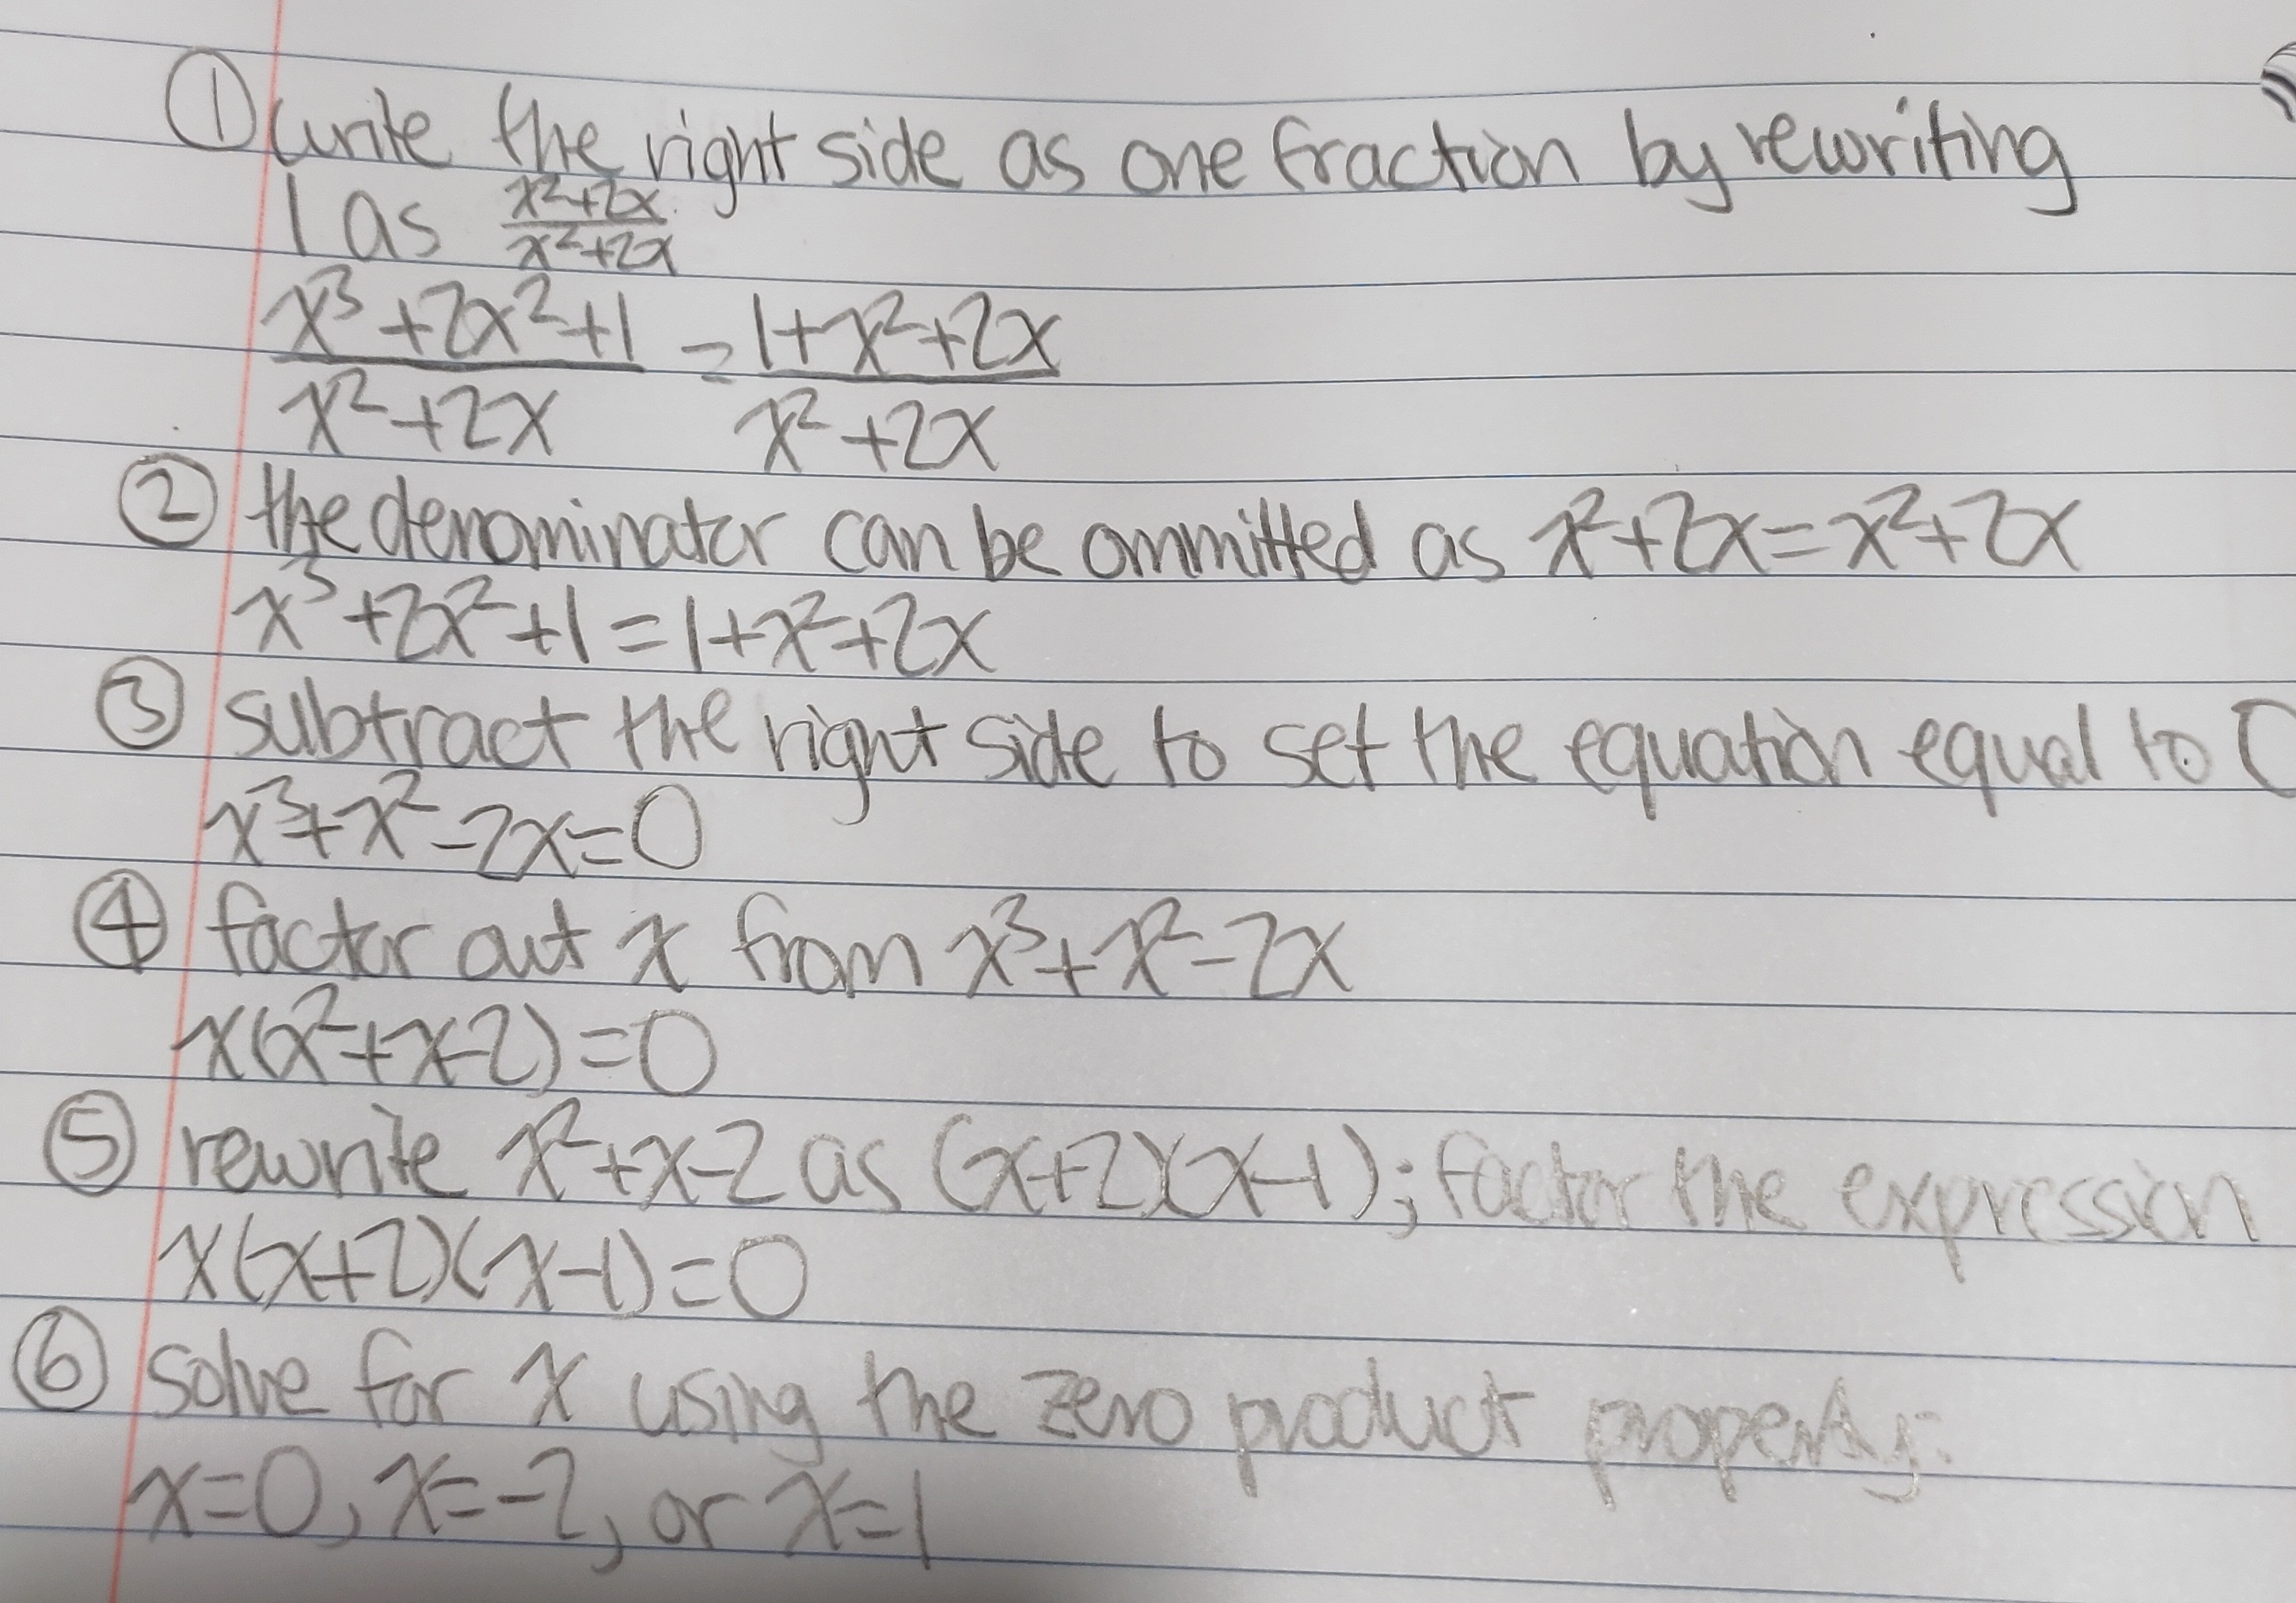 ① write the right side as one fraction by rewriting
1 as \frac{x²+2x}{x²+2x}
\frac{x³+2x²+1}{x²+2x} = \frac{1+x²+2x}{x²+2x}
② the denominator can be ommitted as x²+2x=x²+2x
x³+2x²+1=1+x²+2x
③ subtract the right side to set the equation equal to 0
x³+x²-2x=0
④ factor out x from x³+x²-2x
x(x²+x-2)=0
⑤ rewrite x²+x-2 as (x+2)(x-1); factor the expression
x(x+2)(x-1)=0
⑥ solve for x using the zero product property:
x=0, x=-2, or x=1